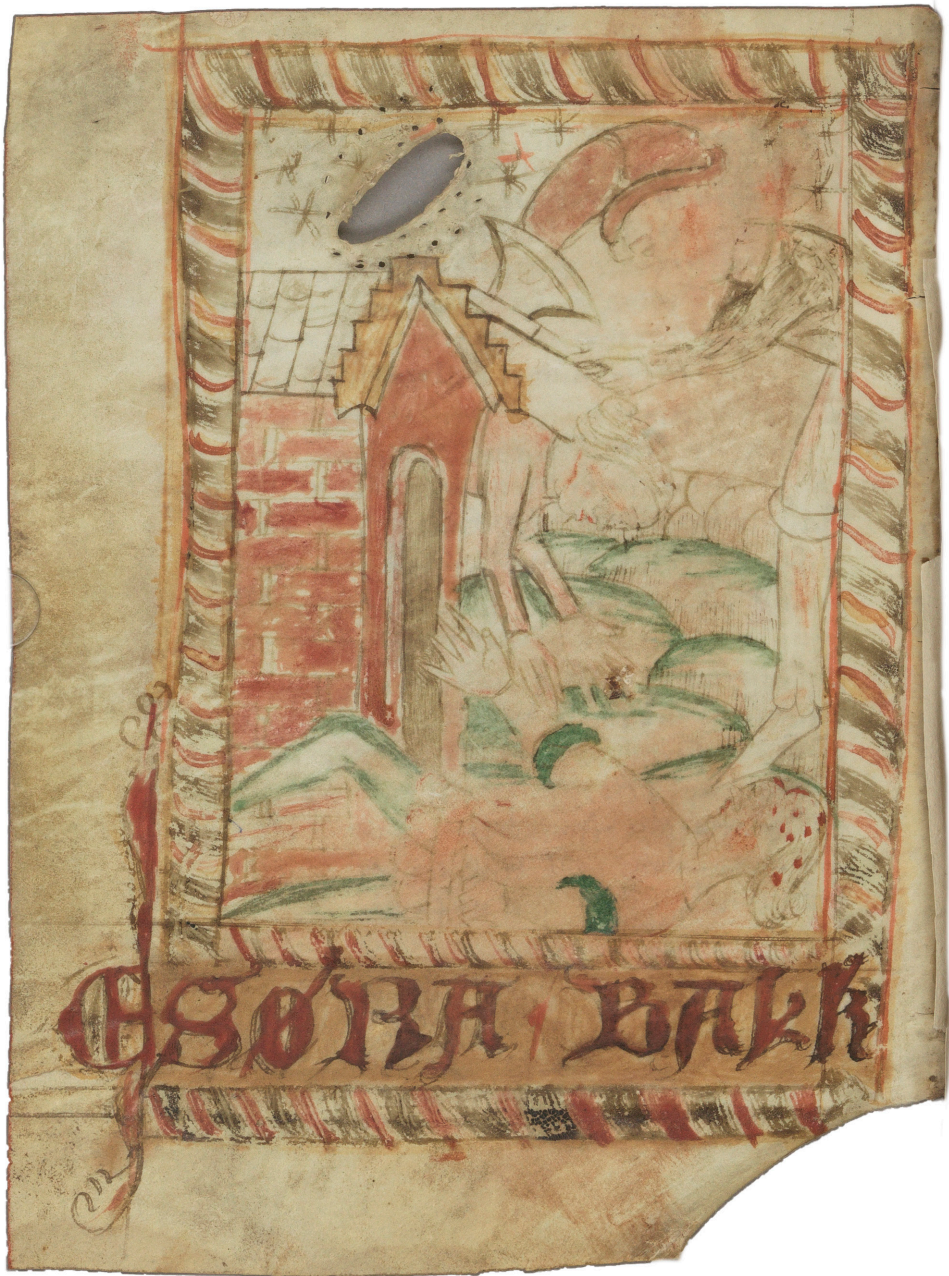 ESØRA · BALkR